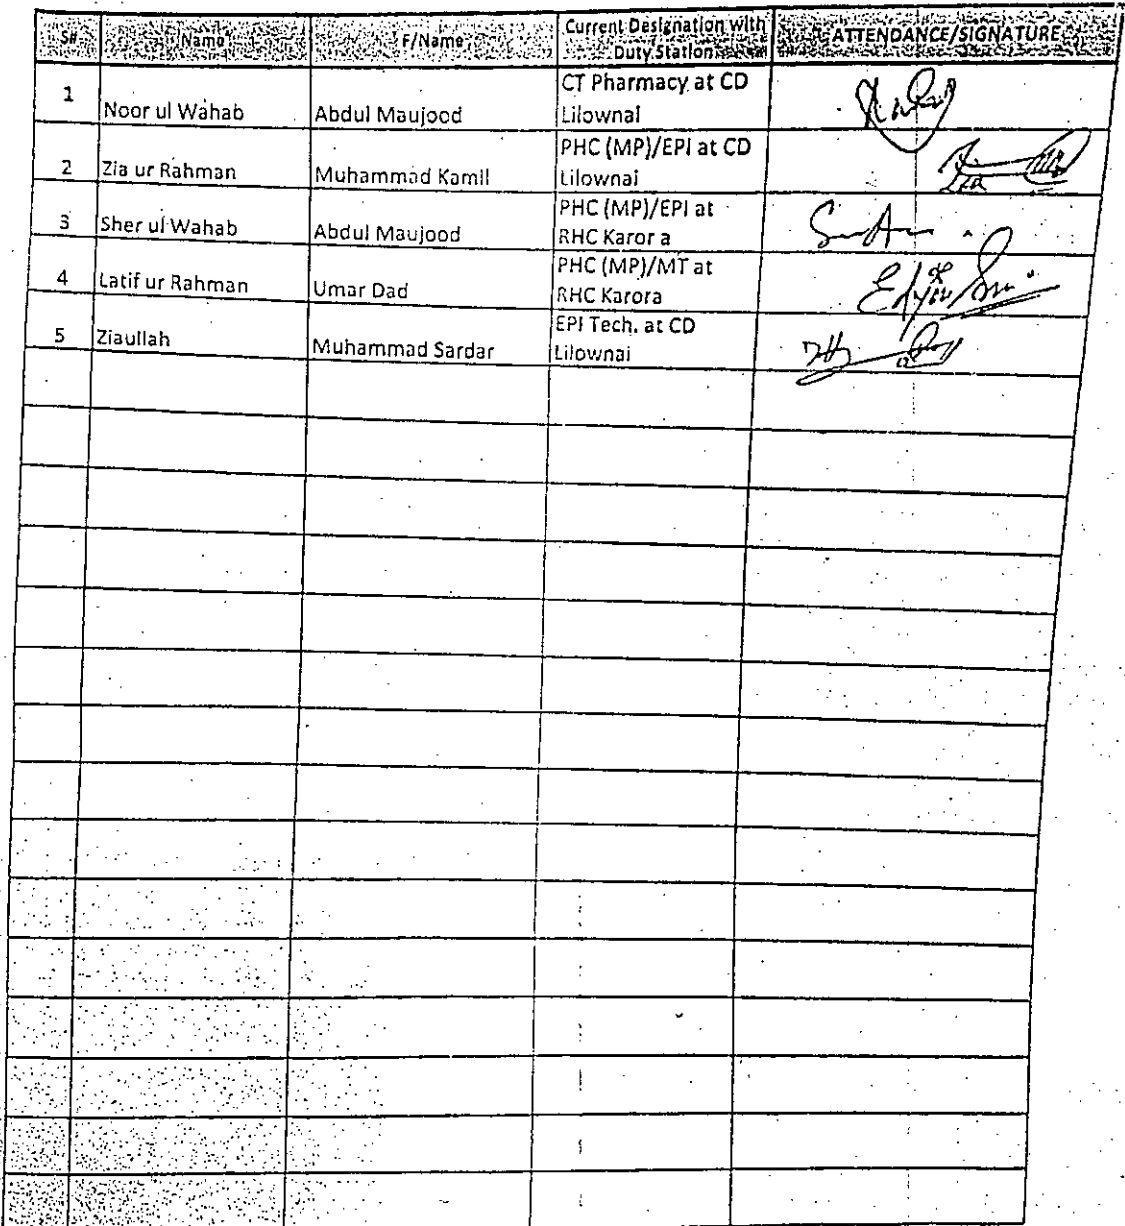 S# Name F/Name Current Designation with Duty Station ATTENDANCE/SIGNATURE
1 Noor ul Wahab Abdul Maujood CT Pharmacy at CD Lilownai
2 Zia ur Rahman Muhammad Kamil PHC (MP)/EPI at CD Lilownai
3 Sher ul Wahab Abdul Maujood PHC (MP)/EPI at RHC Karor a
4 Latif ur Rahman Umar Dad PHC (MP)/MT at RHC Karora
5 Ziaullah Muhammad Sardar EPI Tech. at CD Lilownai